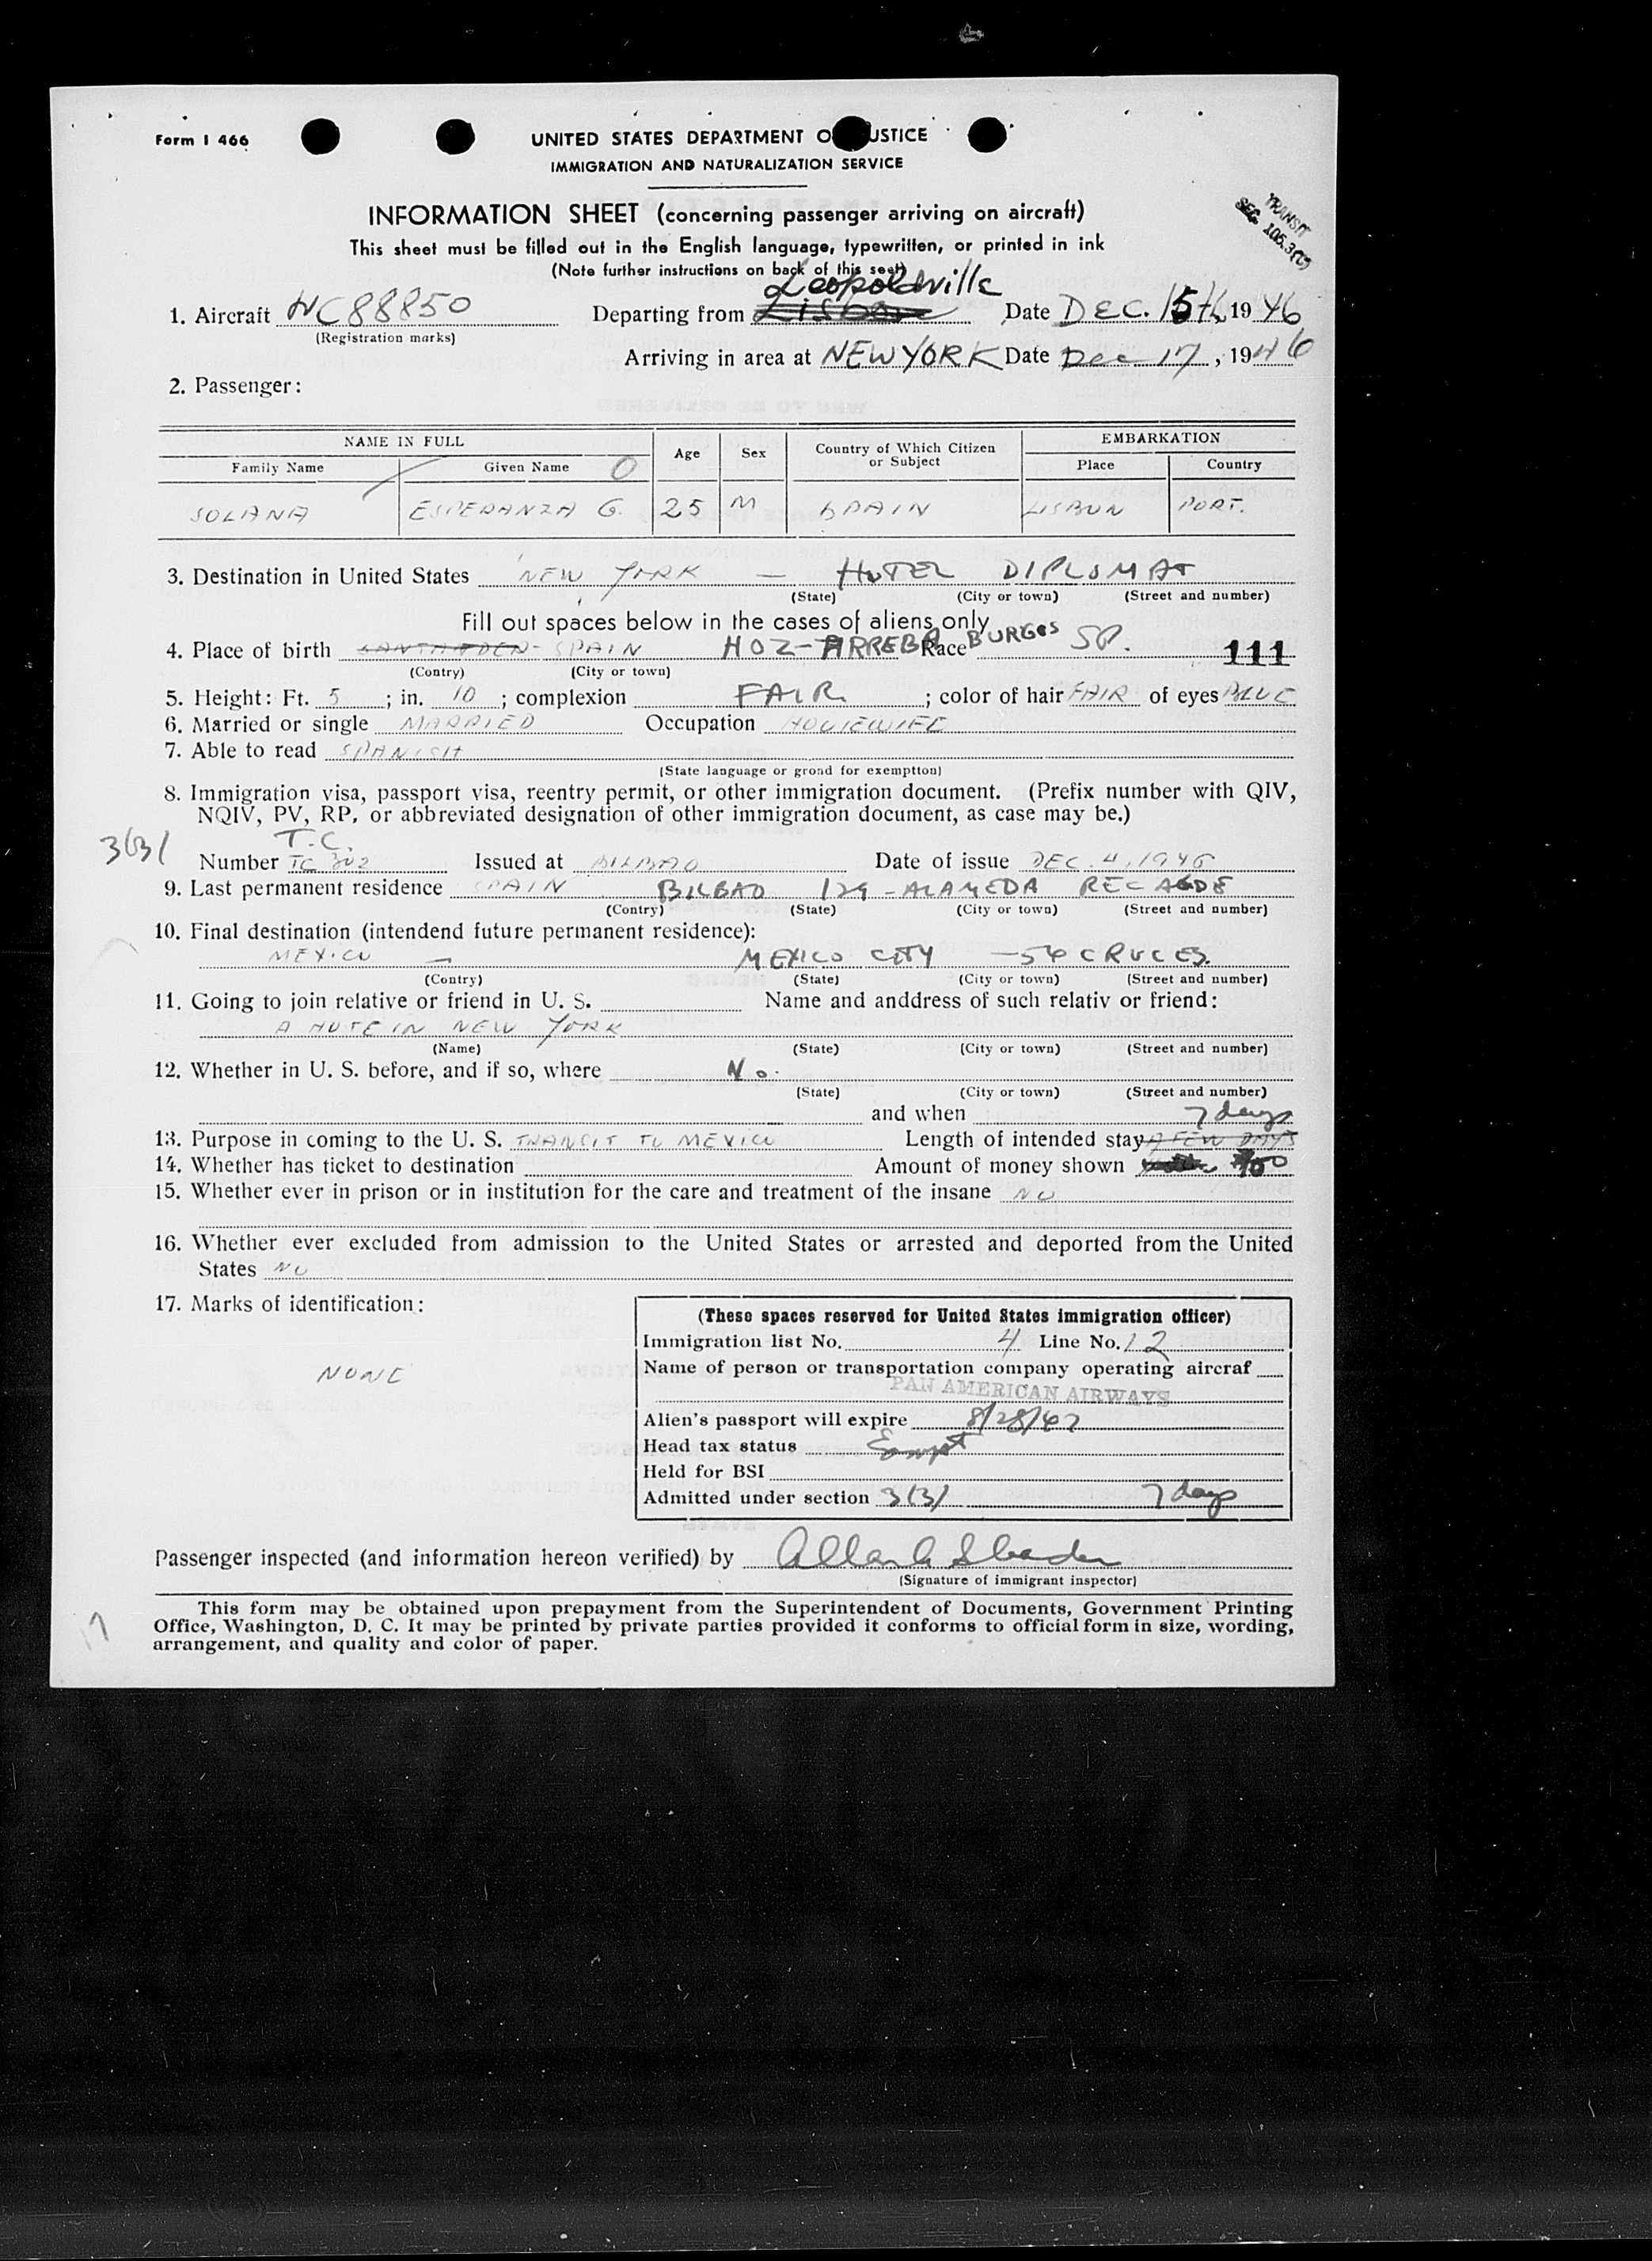 Form I 466
UNITED STATES DEPARTMENT O USTICE
IMMIGRATION AND NATURALIZATION SERVICE
INFORMATION SHEET (concerning passenger arriving on aircraft)
TRANSIT
SEC. 106.3(C)
This sheet must be filled out in the English language, typewritten, or printed in ink
(Note further instructions on back of this seet)
Leopoldville
1. Aircraft NC88850 Departing from Lisbon Date DEC. 15th, 1946
(Registration marks)
Arriving in area at NEW YORK Date Dec 17, 1946
2. Passenger:
NAME IN FULL Age Sex Country of Which Citizen or Subject EMBARKATION
Family Name Given Name Place Country
SOLANA ESPERANZA G. 25 M SPAIN LISBON PORT.
3. Destination in United States NEW YORK — HOTEL DIPLOMAT
(State) (City or town) (Street and number)
Fill out spaces below in the cases of aliens only
4. Place of birth SANTANDER - SPAIN HOZ-ARREBA Race BURGOS SP. 111
(Contry) (City or town)
5. Height: Ft. 5 ; in. 10 ; complexion FAIR ; color of hair FAIR of eyes BLUE
6. Married or single MARRIED Occupation HOUSEWIFE
7. Able to read SPANISH
(State language or grond for exemptton)
8. Immigration visa, passport visa, reentry permit, or other immigration document. (Prefix number with QIV,
NQIV, PV, RP, or abbreviated designation of other immigration document, as case may be.)
3(3) T.C.
Number TC 302 Issued at BILBAO Date of issue DEC. 4, 1946
9. Last permanent residence SPAIN BILBAO 129 - ALAMEDA RECAGDE
(Contry) (State) (City or town) (Street and number)
10. Final destination (intendend future permanent residence):
MEXICO — MEXICO CITY — 54 CRUCES.
(Contry) (State) (City or town) (Street and number)
11. Going to join relative or friend in U. S. Name and anddress of such relativ or friend:
A HOTE IN NEW YORK
(Name) (State) (City or town) (Street and number)
12. Whether in U. S. before, and if so, where No.
(State) (City or town) (Street and number)
and when 7 days
13. Purpose in coming to the U. S. TRANSIT TO MEXICO Length of intended stay A FEW DAYS
14. Whether has ticket to destination Amount of money shown
15. Whether ever in prison or in institution for the care and treatment of the insane NO
16. Whether ever excluded from admission to the United States or arrested and deported from the United
States NO
17. Marks of identification:
NONE
(These spaces reserved for United States immigration officer)
Immigration list No. 4 Line No. 12
Name of person or transportation company operating aircraf
PAN AMERICAN AIRWAYS
Alien's passport will expire 8/28/47
Head tax status Exempt
Held for BSI
Admitted under section 3(3) 7 days
Passenger inspected (and information hereon verified) by
(Signature of immigrant inspector)
This form may be obtained upon prepayment from the Superintendent of Documents, Government Printing
Office, Washington, D. C. It may be printed by private parties provided it conforms to official form in size, wording,
arrangement, and quality and color of paper.